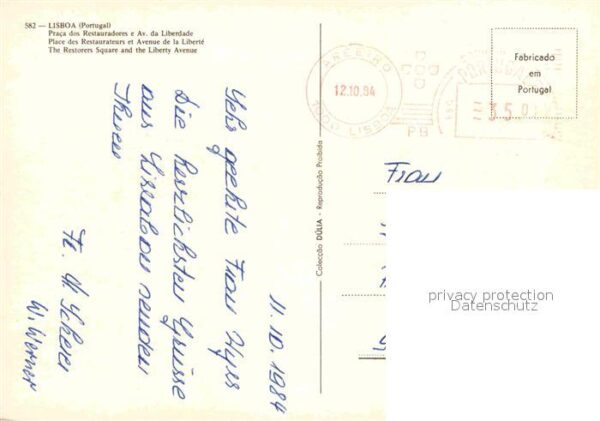 582 — LISBOA (Portugal)
Praça dos Restauradores e Av. da Liberdade
Place des Restaurateurs et Avenue de la Liberté
The Restorers Square and the Liberty Avenue
11.10.1984
Sehr geehrte Frau
Die herzlichsten Grüsse
aus Lissabon senden
Ihnen
W. Werner
Colecção DÚLIA - Reprodução Proibida
AREEIRO
12.10.84
1000 LISBOA
PB
PORTUGAL
Fabricado
em
Portugal
Frau
privacy protection
Datenschutz